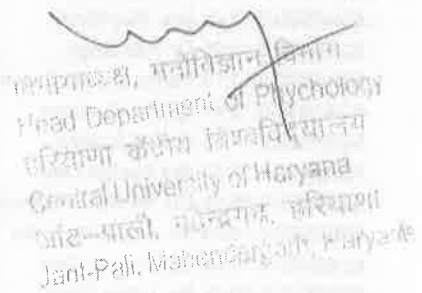 विभागाध्यक्ष, मनोविज्ञान विभाग
Head Department of Psychology
हरियाणा केंद्रीय विश्वविद्यालय
Central University of Haryana
जांट-पाली, महेन्द्रगढ़, हरियाणा
Jant-Pali, Mahendergarh, Haryana